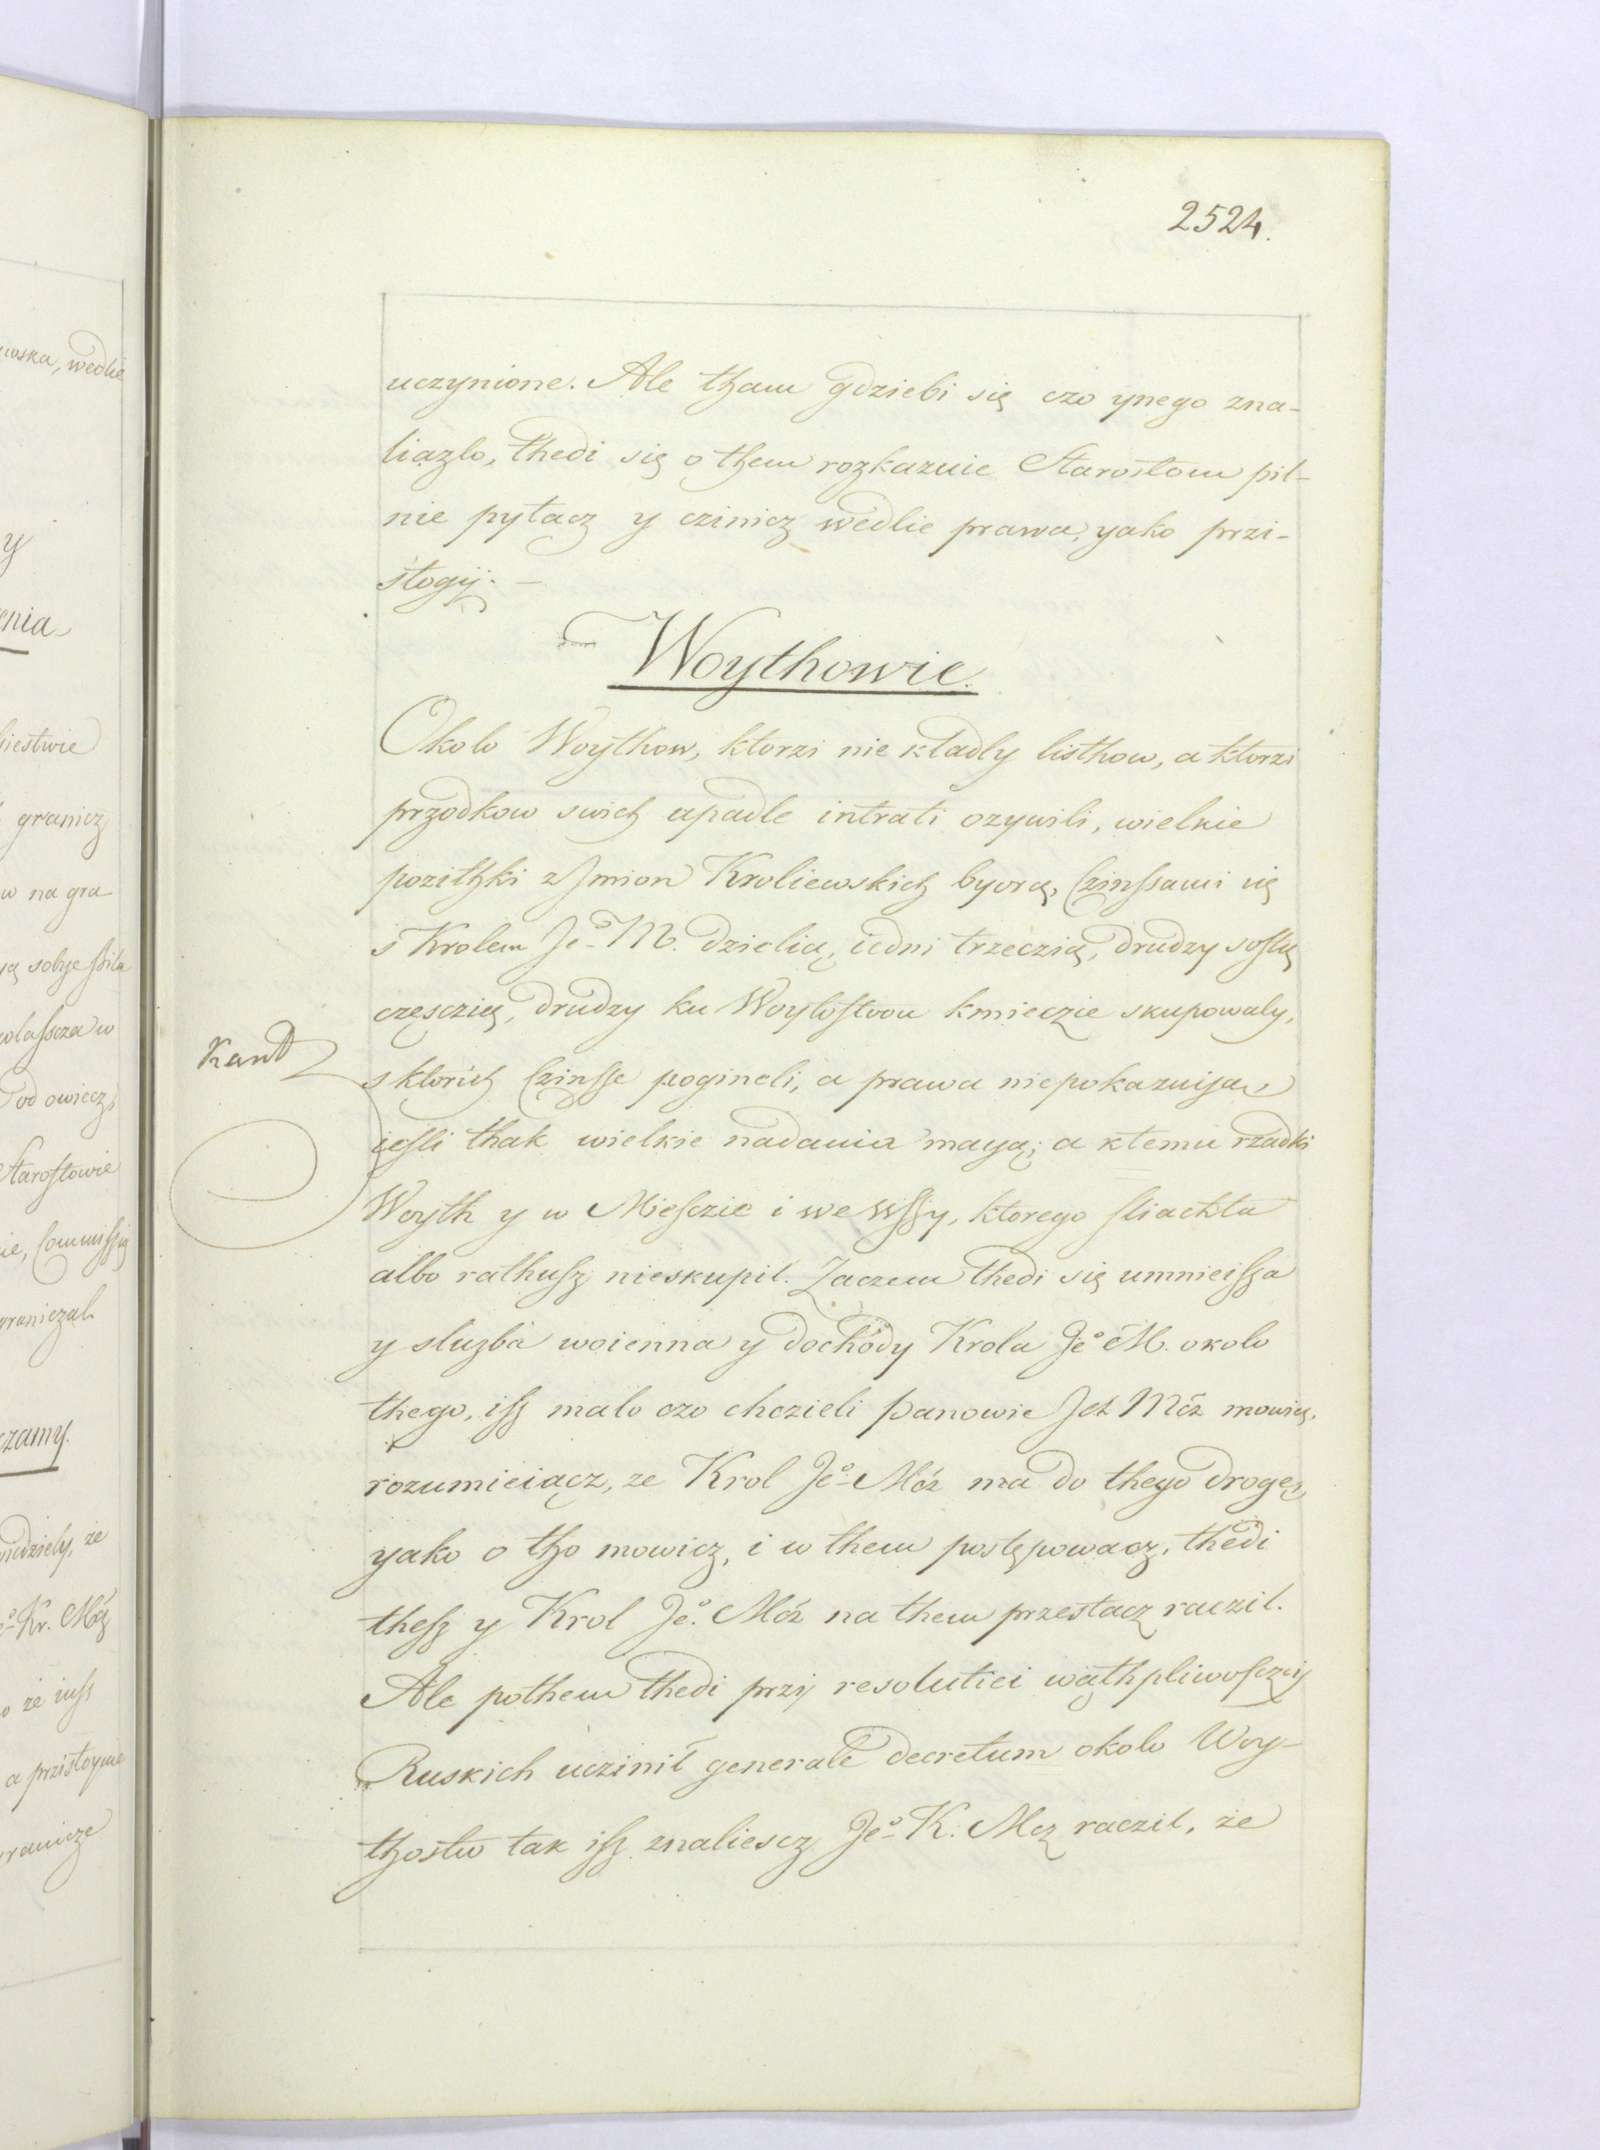 2524.
uczynione. Ale tham gdziebi się czo ynego zna-
liazlo, thedi się o them rozkazuie Starostom pil-
nie pytacz y czinicz wedlie prawa, yako przi-
stogÿ. —
Woythowie.
Okolo Woythow, ktorzi nie kładly listhow, a ktorzi
przodkow swich apadle intrati ozywili, wielkie
pozithki z Jmion Kroliewskich byorą, Czinssami się
s Krolem Jeº M. dzielią, iedni trzeczią, drudzy sostą
częsczią, drudzy ku Woytostwu kmieczie skupowaly,
s ktorich Czinsse pogineli, a prawa niepokazuiją,
iesli thak wielkie nadania mayą; a ktemu rzadki
Woyth y w Miesczie i we wssy, ktorego sliachta
albo rathusz nieskupił. Zaczem thedi się umnieissa
y sluzba woienna y dochody Krola Jeº M. okolo
thego, isz malo czo chczieli panowie Jch Mćz mowicz,
rozumieiącz, ze Krol Jeº Mćz ma do thego drogę,
yako o tho mowicz, i w them postępowacz, thedi
thesz y Krol Jeº Mćz na them przestacz raczil.
Ale pothem thedi przÿ resolutiei wąthpliwosczij
Ruskich uczinił generale decretum okolo Woy-
thostw tak isz znaliescz Jeº K. Mcz raczil, że
Kant
wedlie
y
enia
granicz
w na gra
ą sobye
od owiecz
Starostowie
ie, Commissią
graniczal
czamy.
że
Kr. Mćz
o że iuss
a przistoyne
granicze